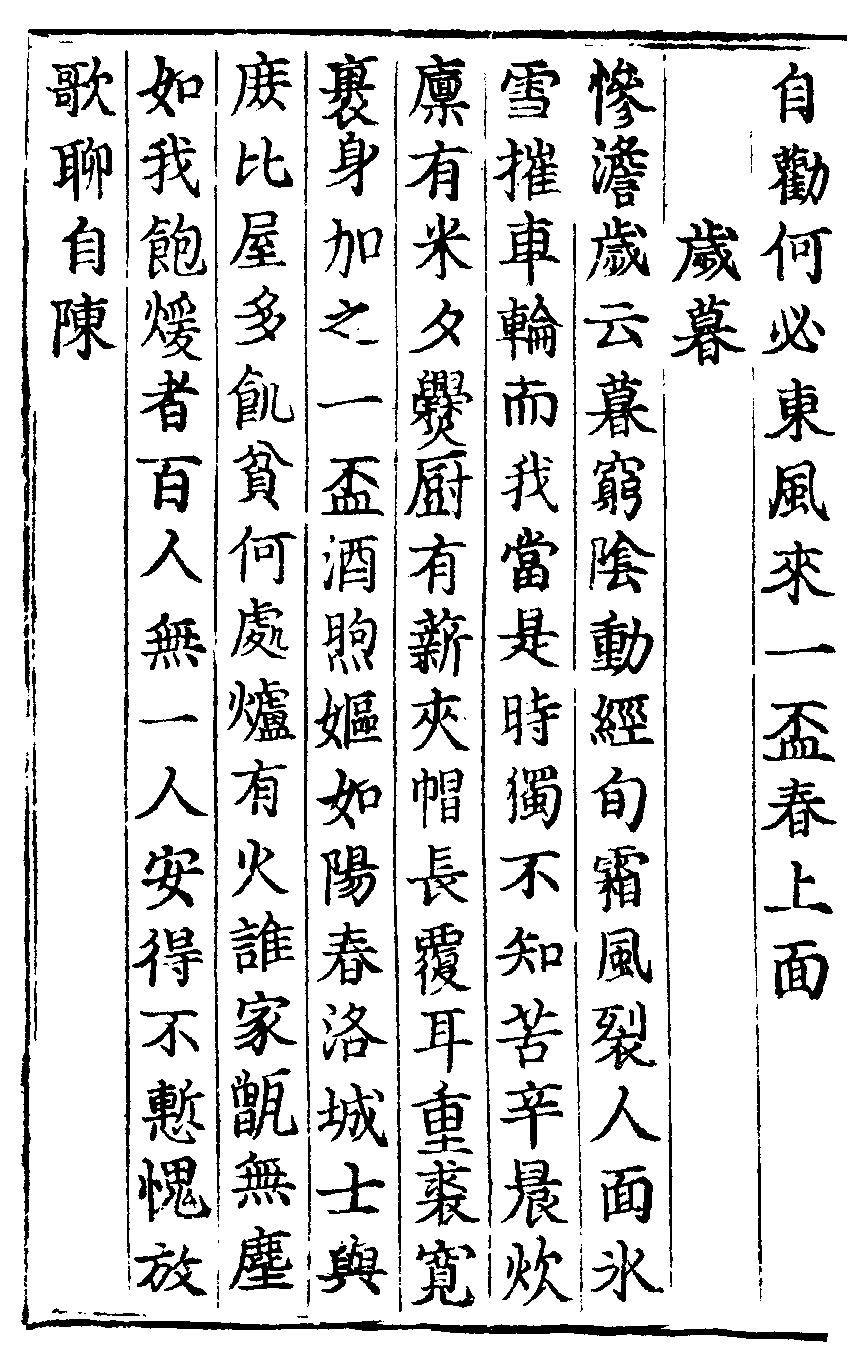 自勸何必東風來一盃春上面
歲暮
慘澹歲云暮窮陰動經旬霜風裂人面氷
雪摧車輪而我當是時獨不知苦辛晨炊
廪有米夕爨厨有薪夾帽長覆耳重裘寬
裹身加之一盃酒煦嫗如陽春洛城士與
庻比屋多飢貧何處爐有火誰家甑無塵
如我飽煖者百人無一人安得不慙愧放
歌聊自陳